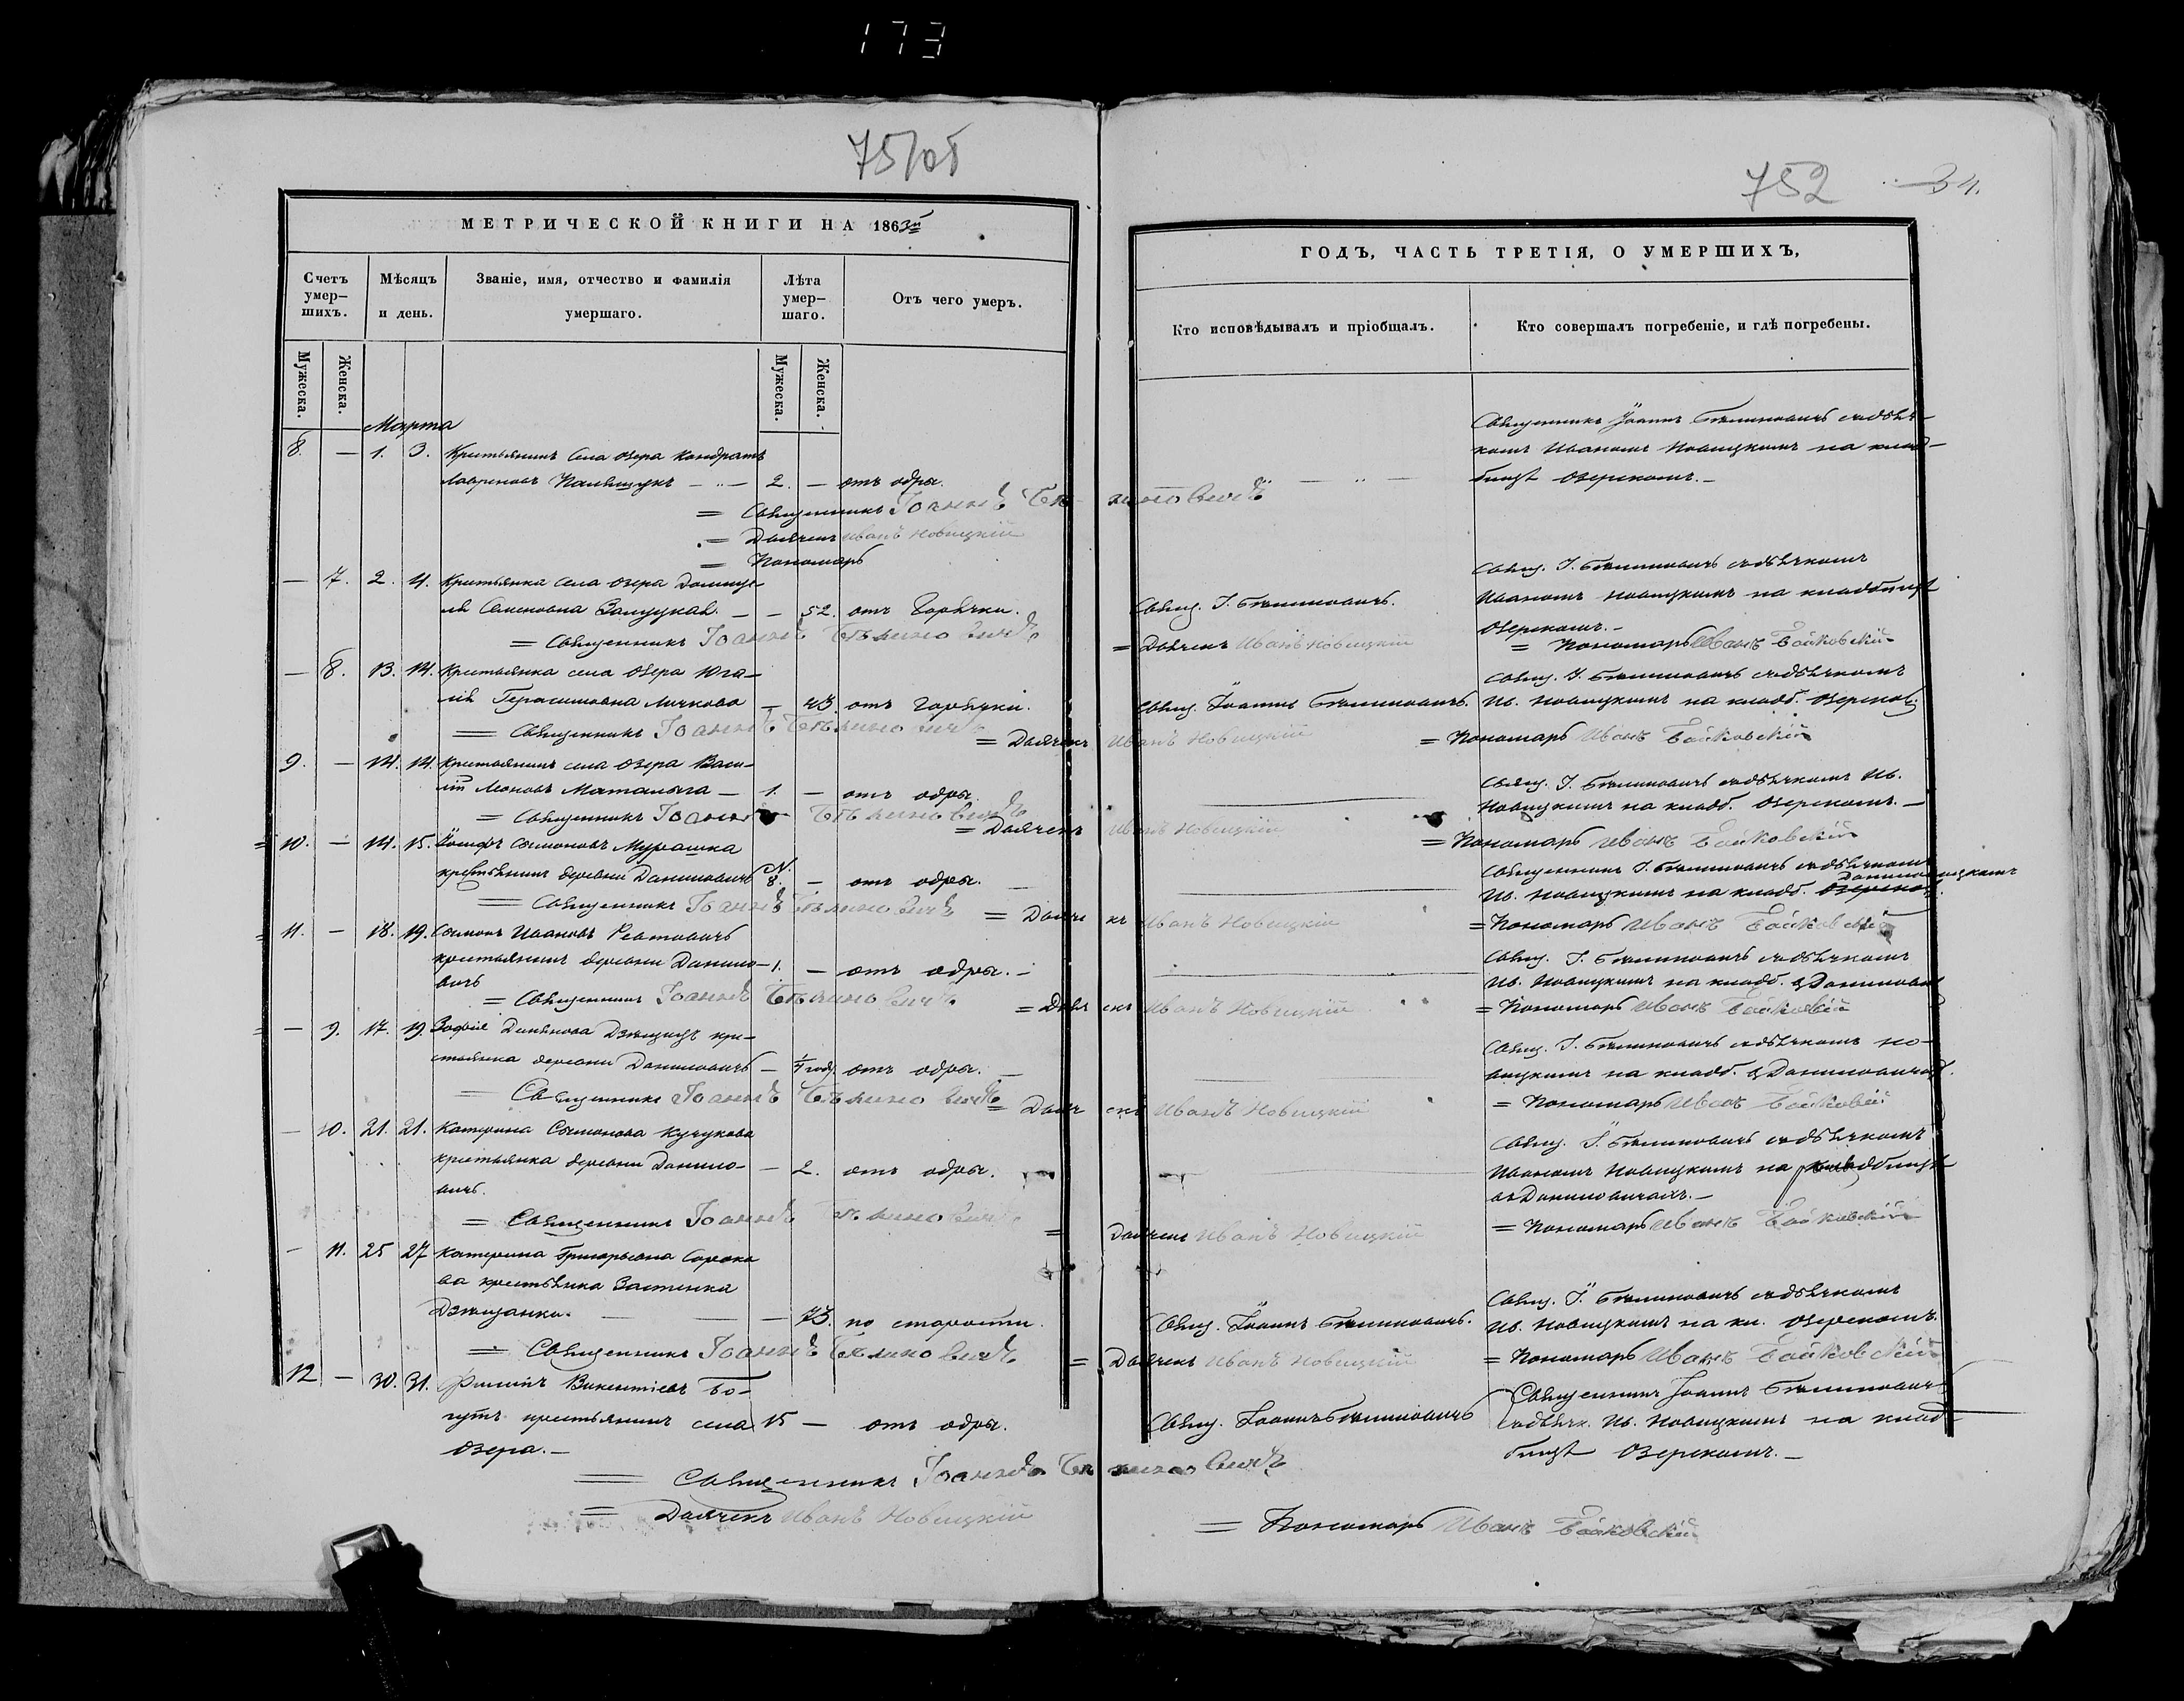 173
75/об
752 34.
МЕТРИЧЕСКОЙ КНИГИ НА 1863й
Счетъ умер-
шихъ.
Мѣсяцъ
и день.
Званіе, имя, отчество и фамилія
умершаго.
Лѣта
умер-
шаго.
Отъ чего умеръ.
Мужеска.
Женска.
Мужеска.
Женска.
Марта
8. — 1. 3. Крестьянинъ села Озера Кондратъ
Лавреновъ Палѣщукъ — 2. — отъ одры.
= Священникъ Іоаннъ Бѣлиновичъ
= Дьячекъ Иванъ Новицкій
= Пономарь
— 7. 2. 4. Крестьянка села Озера Домице-
ля Семеновна Залуцкая. — — 52. отъ Горячки.
= Священникъ Іоаннъ Бѣлиновичъ
— 8. 13. 14. Крестьянка села Озера Юга-
лія Герасимовна — 43. отъ Горячки.
= Священникъ Іоаннъ Бѣлиновичъ = Дьячекъ Иванъ Новицкій
9. — 14. 14. Крестьянинъ села Озера Васи-
лій Леоновъ — 1. — отъ одры.
= Священникъ Іоаннъ Бѣлиновичъ = Дьячекъ Иванъ Новицкій
10. — 14. 15. Іосифъ Сымоновъ Мурашка
крестьянинъ деревни Даниловичъ 8. — отъ одры.
= Священникъ Іоаннъ Бѣлиновичъ = Дьячекъ Иванъ Новицкій
11. — 18. 19. Сымонъ Ивановъ
крестьянинъ деревни Данило- 1. — отъ одры.
вичъ
= Священникъ Іоаннъ Бѣлиновичъ = Дьячекъ Иванъ Новицкій
— 9. 17. 19. Зофія кре-
стьянка деревни Даниловичъ — отъ одры.
Священникъ Іоаннъ Бѣлиновичъ = Дьячекъ Иванъ Новицкій
— 10. 21. 21. Катерина Сымонова Кучукова
крестьянка деревни Данило- — 2. отъ одры.
вичъ.
= Священникъ Іоаннъ Бѣлиновичъ = Дьячекъ Иванъ Новицкій
— 11. 25 27 Катерина Григорьевна Сороко
ва крестьянка Застенка
— 73. по старости.
= Священникъ Іоаннъ Бѣлиновичъ = Дьячекъ Иванъ Новицкій
12 — 30. 31. Викентіевъ Бо-
гутъ крестьянинъ села 15 — отъ одры.
Озера. —
= Священникъ Іоаннъ Бѣлиновичъ
= Дьячекъ Иванъ Новицкій
ГОДЪ, ЧАСТЬ ТРЕТІЯ, О УМЕРШИХЪ,
Кто исповѣдывалъ и пріобщалъ.
Кто совершалъ погребеніе, и гдѣ погребены.
Священникъ Іоаннъ Бѣлиновичъ съ дьяч-
комъ Иваномъ Новицкимъ на клад-
бищѣ Озерскомъ. —
Свящ. І. Бѣлиновичъ.
Свящ. І. Бѣлиновичъ съ дьячкомъ
Иваномъ Новицкимъ на кладбищѣ
Озерскомъ. —
= Дьячекъ Иванъ Новицкій = Пономарь Иванъ Байковскій
Свящ. Іоаннъ Бѣлиновичъ.
Свящ. І. Бѣлиновичъ съ дьячкомъ
Ив. Новицкимъ на кладб. Озерском.
= Пономарь Иванъ Байковскій
Свящ. І. Бѣлиновичъ съ дьячкомъ Ив.
Новицкимъ на кладб. Озерскомъ. —
= Пономарь Иванъ Байковскій
Священникъ І. Бѣлиновичъ съ дьячкомъ
Ив. Новицкимъ на кладб. Озерском Даниловицкимъ
= Пономарь Иванъ Байковскій
Свящ. І. Бѣлиновичъ съ дьячкомъ
Ив. Новицкимъ на кладб.
= Пономарь Иванъ Байковскій
Свящ. І. Бѣлиновичъ съ дьячкомъ Но-
вицкимъ на кладб. в Даниловичах.
= Пономарь Иванъ Байковскій
Свящ. І. Бѣлиновичъ съ дьячкомъ
Иваномъ Новицкимъ на кладбищѣ
въ Даниловичахъ. —
= Пономарь Иванъ Байковскій
Свящ. Іоаннъ Бѣлиновичъ.
Свящ. І. Бѣлиновичъ съ дьячкомъ
Ив. Новицкимъ на кл. Озерскомъ.
= Пономарь Иванъ Байковскій
Свящ. Іоаннъ Бѣлиновичъ
Священникъ Іоаннъ Бѣлиновичъ
съ дьячк. Ив. Новицкимъ на клад-
бищѣ Озерскомъ. —
= Пономарь Иванъ Байковскій